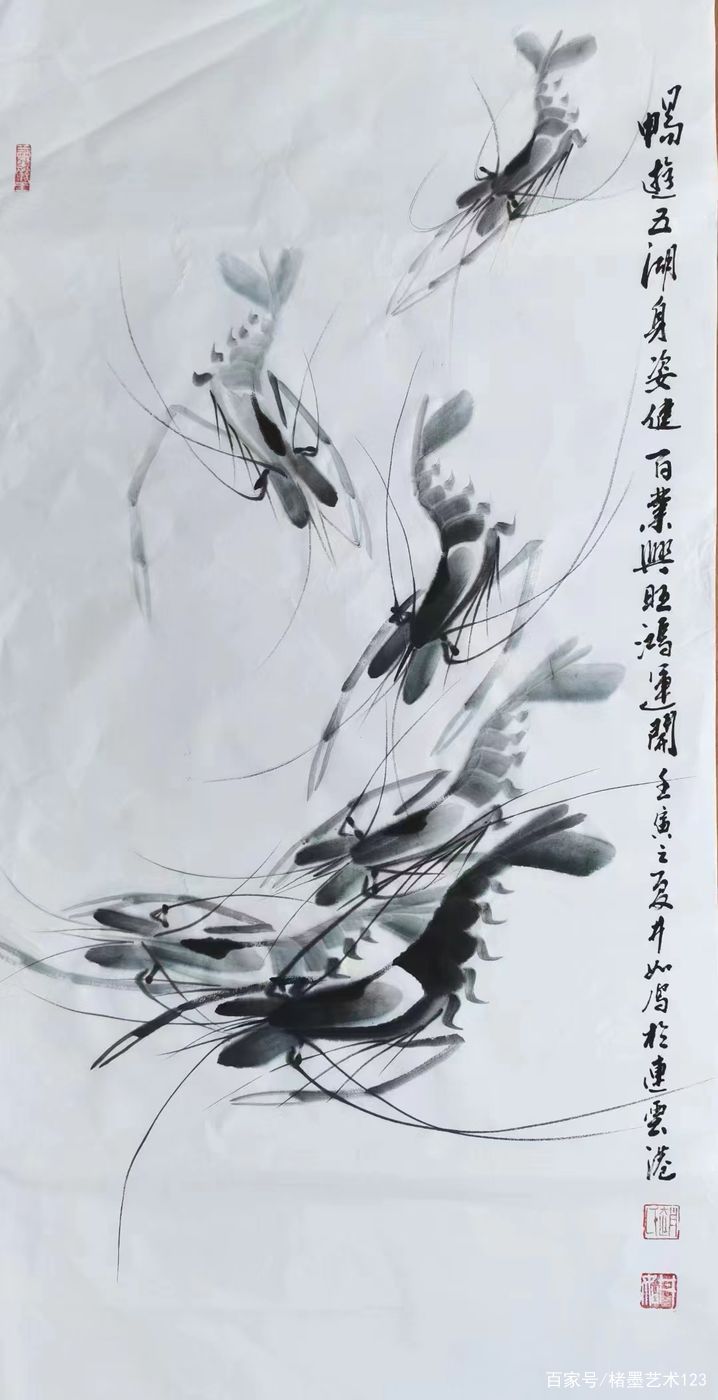 暢遊五湖身姿健 百業興旺鴻運開 壬寅之夏井如寫於連雲港
百家号/楮墨艺术123